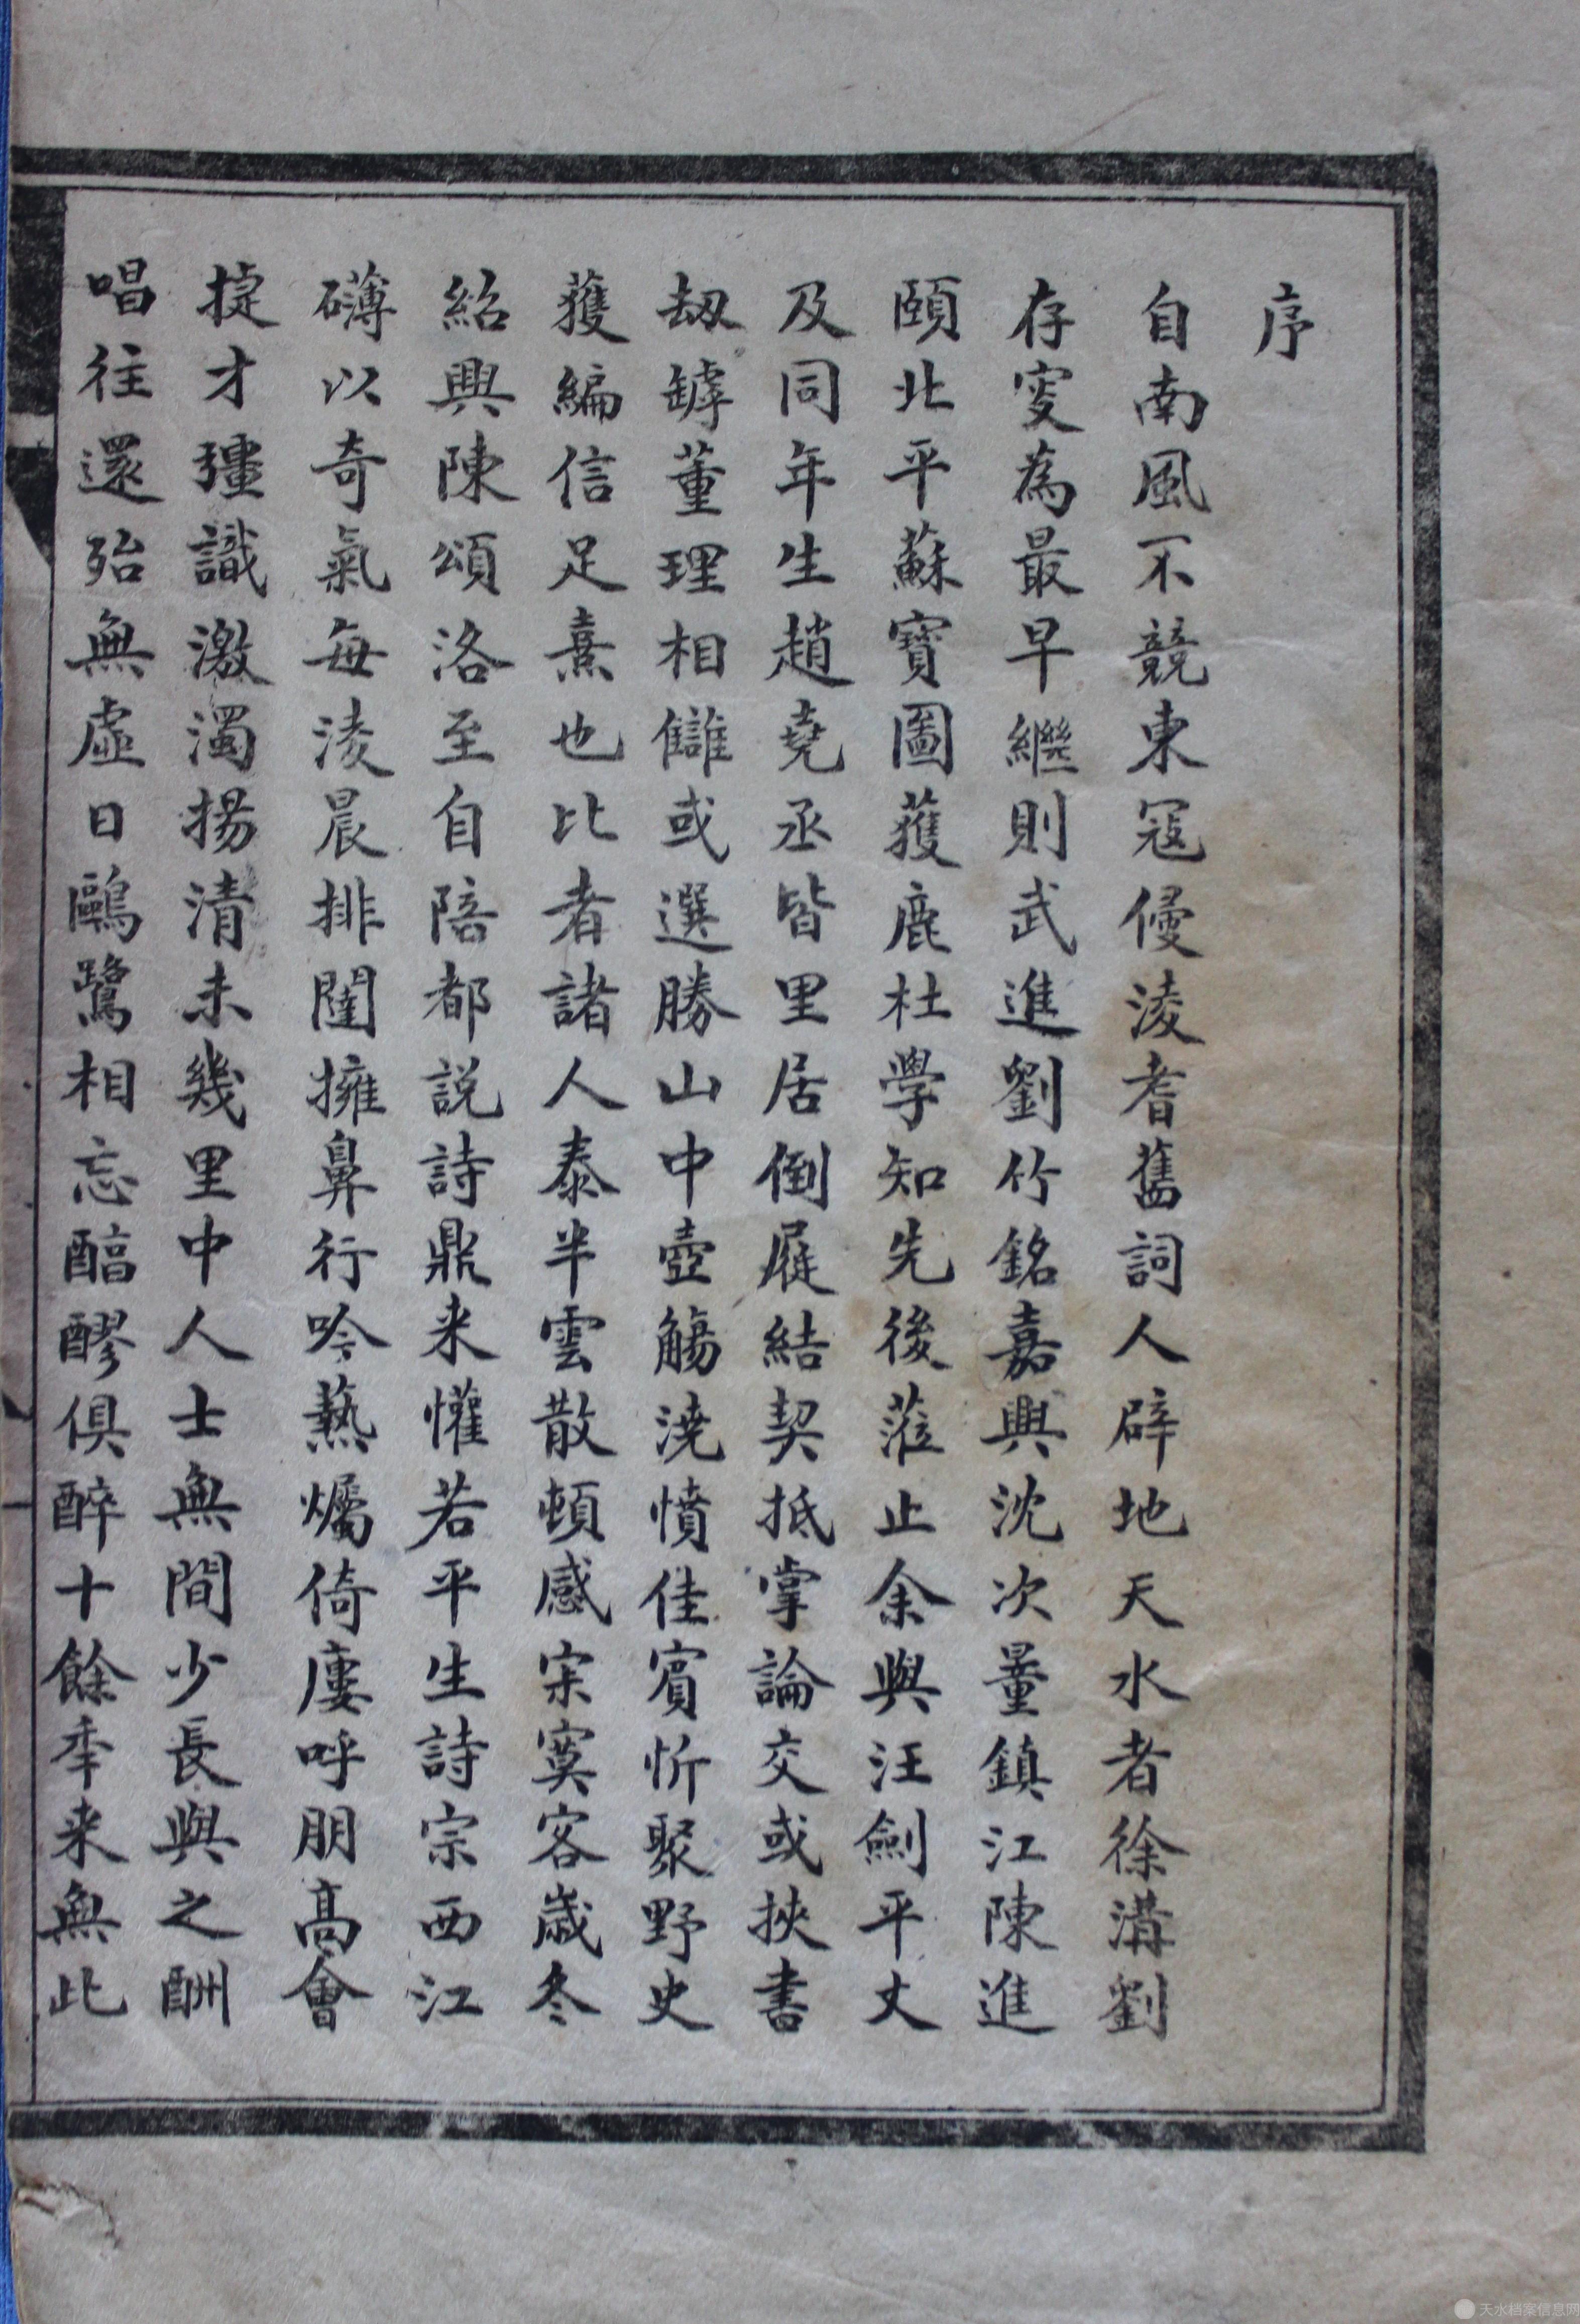 序
自南風不競東寇侵淩耆舊詞人辟地天水者徐溝劉
存叜為最早繼則武進劉竹銘嘉興沈次量鎮江陳進
頤北平蘇寶圖獲鹿杜學知先後蒞止余與汪劍平丈
及同年生趙堯丞皆里居倒屣結契抵掌論交或挾書
刼罅董理相讎或選勝山中壺觴澆憤佳賓忻聚野史
獲編信足熹也比者諸人泰半雲散頓感宗寞客歲冬
紹興陳頌洛至自陪都説詩鼎来懽若平生詩宗西江
礴以奇氣每淩晨排闥擁鼻行吟爇爥倚廔呼朋高會
㨗才殭識激濁揚清未幾里中人士無間少長與之酬
唱往還殆無虛日鷗鷺相忘醕醪俱醉十餘秊来無此
天水档案信息网